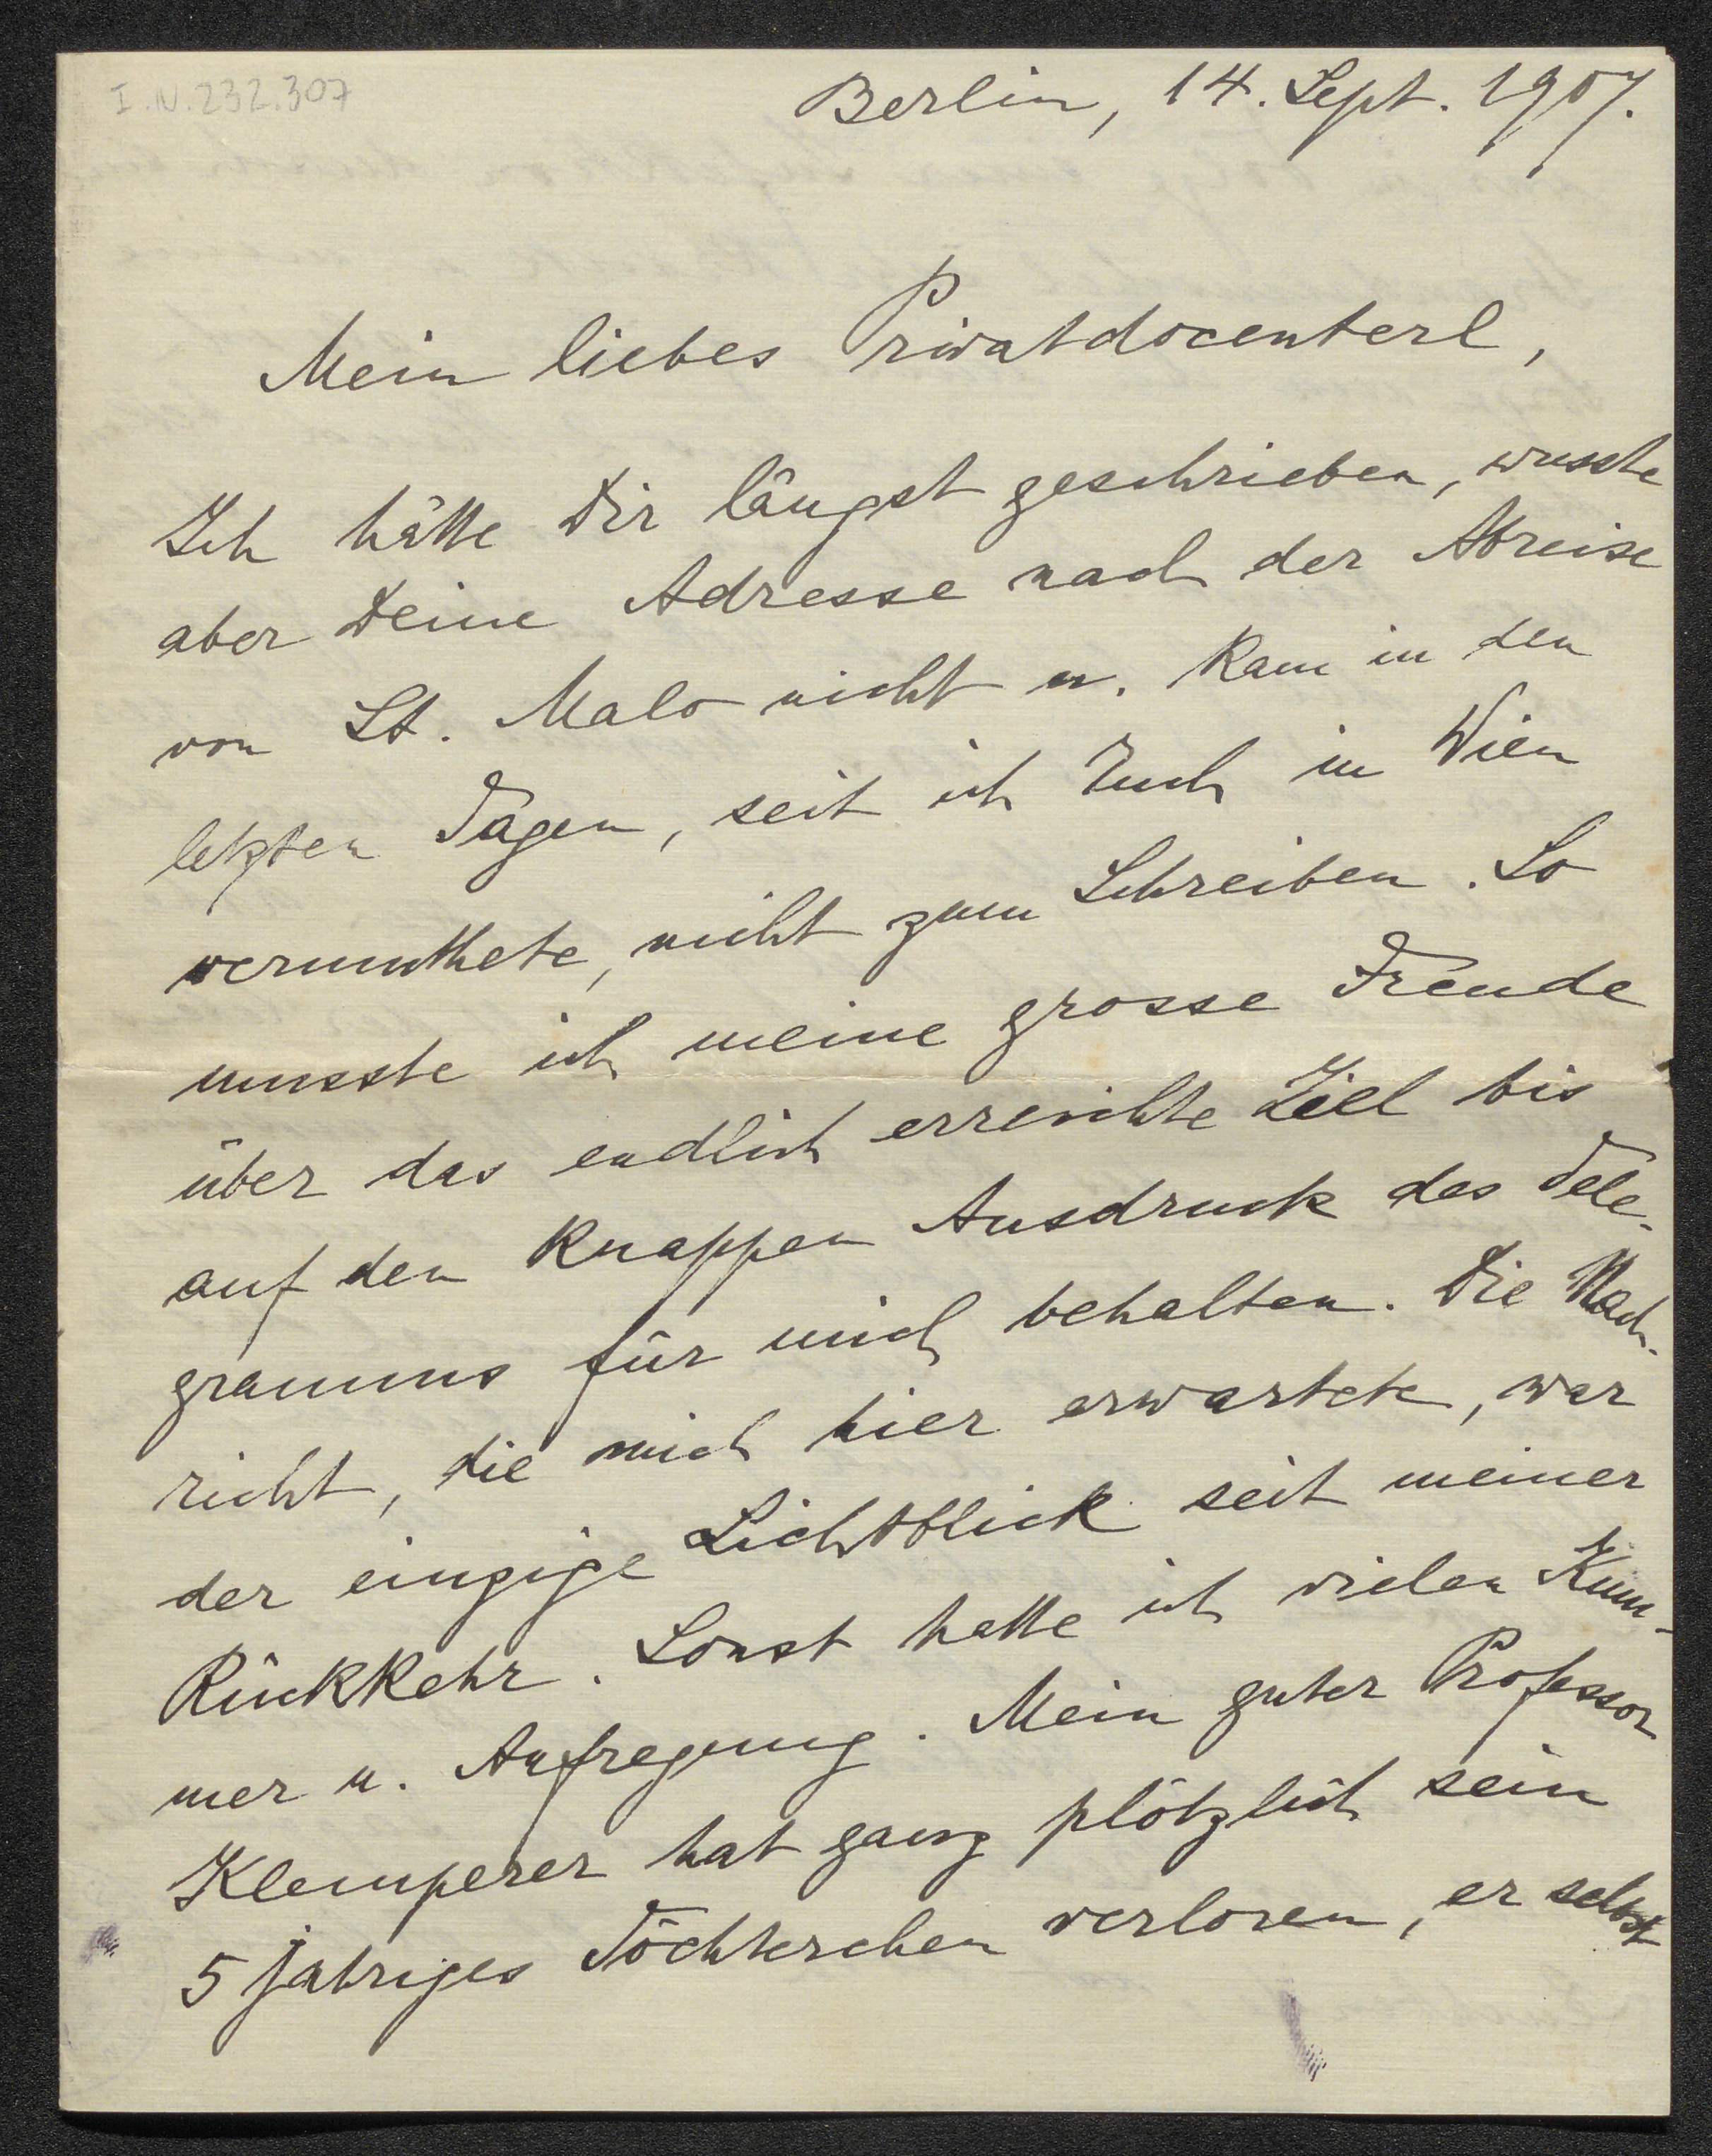 I.N.232.307
Berlin, 14. Sept. 1907.
Mein liebes Privatdocenterl,
Ich hätte Dir längst geschrieben, wusste
aber Deine Adresse nach der Abreise
von St. Malo nicht u. kam in den
letzten Tagen, seit ich Euch in Wien
vermuthete, nicht zum Schreiben. So
musste ich meine grosse Freude
über das endlich erreichte Ziel bis
auf den knappen Ausdruck des Tele-
gramms für mich behalten. Die Nach-
richt, die mich hier erwartete, war
der einzige Lichtblick seit meiner
Rückkehr. Sonst hatte ich vielen Kum-
mer u. Aufregung. Mein guter Professor
Klemperer hat ganz plötzlich sein
5 jähriges Töchterchen verloren, er selbst